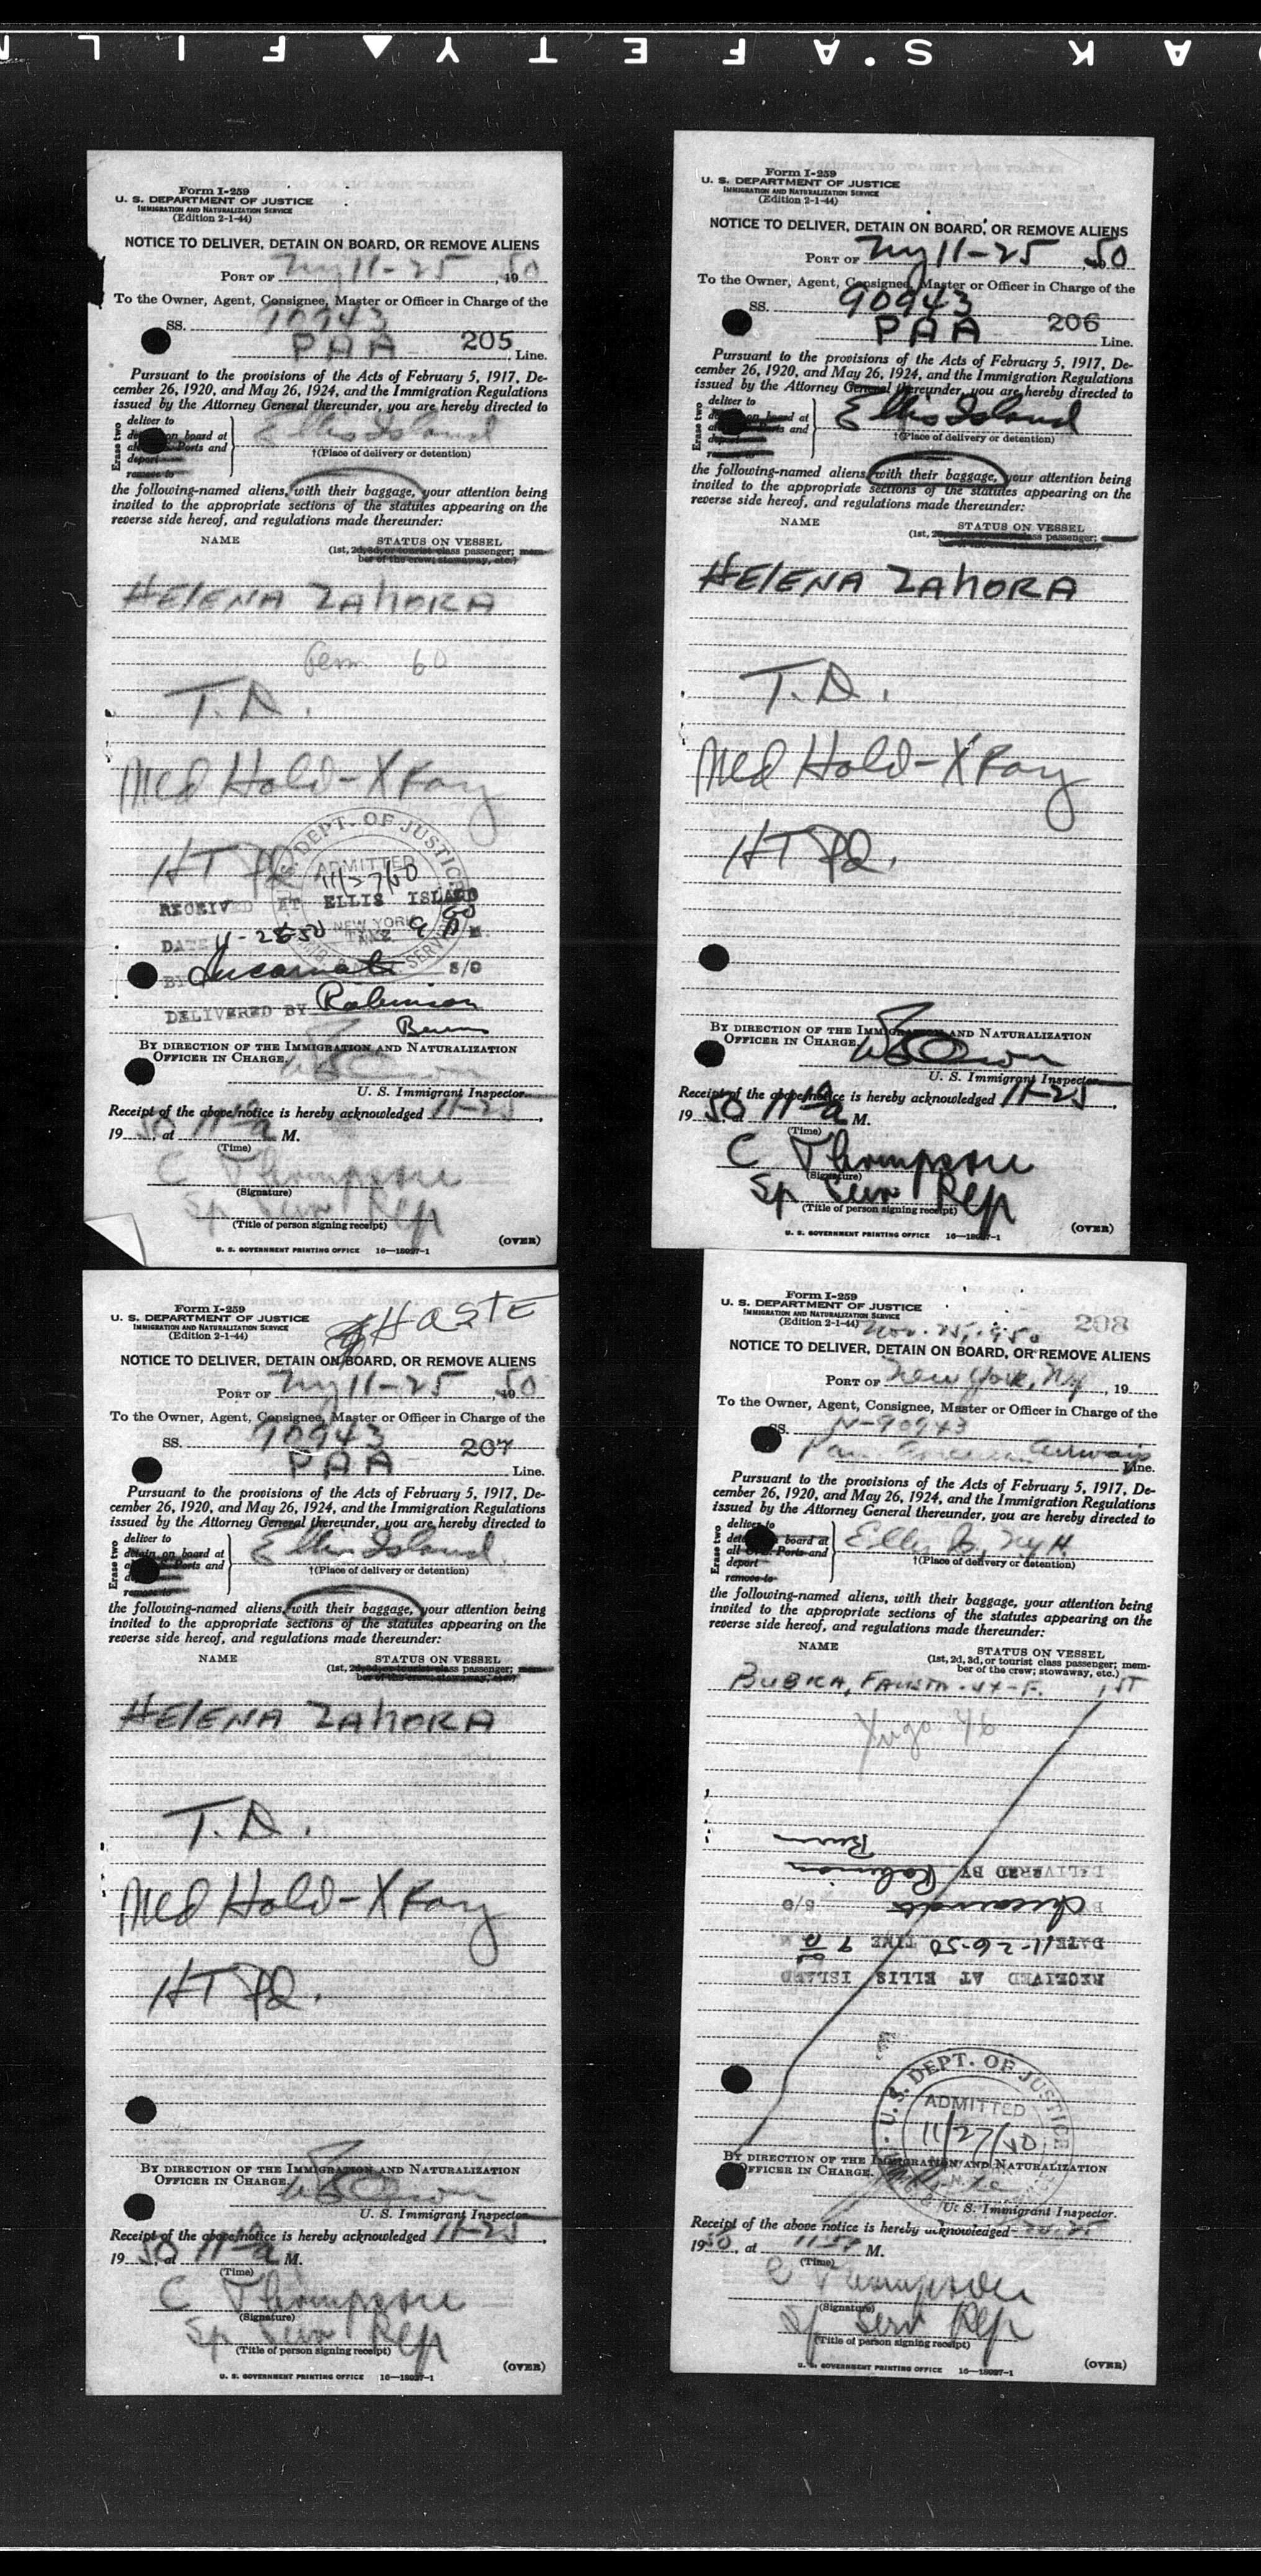 KODAK SAFETY FILM
Form I-259
U. S. DEPARTMENT OF JUSTICE
IMMIGRATION AND NATURALIZATION SERVICE
(Edition 2-1-44)
NOTICE TO DELIVER, DETAIN ON BOARD, OR REMOVE ALIENS
PORT OF NY 11-25, 1950
To the Owner, Agent, Consignee, Master or Officer in Charge of the
SS. 90943
PAA 205 Line.
Pursuant to the provisions of the Acts of February 5, 1917, De-
cember 26, 1920, and May 26, 1924, and the Immigration Regulations
issued by the Attorney General thereunder, you are hereby directed to
Erase two
deliver to
on board at
Ports and
deport
remove to
Ellis Island
†(Place of delivery or detention)
the following-named aliens, with their baggage, your attention being
invited to the appropriate sections of the statutes appearing on the
reverse side hereof, and regulations made thereunder:
NAME STATUS ON VESSEL
(1st, 2d, 3d, or tourist class passenger; mem-
ber of the crew; stowaway, etc.)
HELENA ZAHORA
60
T.D.
Med Hold - X Ray
HT
U.S. DEPT. OF JUSTICE
ADMITTED
NEW YORK
RECEIVED AT ELLIS ISLAND
DATE 11-26-50 TIME 9 00 A M
BY S/O
DELIVERED BY Robinson
Burns
BY DIRECTION OF THE IMMIGRATION AND NATURALIZATION
OFFICER IN CHARGE.
U. S. Immigrant Inspector.
Receipt of the above notice is hereby acknowledged 11-25,
1950, at 11 a M.
(Time)
C Thompson
(Signature)
Sp Serv Rep
(Title of person signing receipt)
(OVER)
U. S. GOVERNMENT PRINTING OFFICE 16—18027-1
Form I-259
U. S. DEPARTMENT OF JUSTICE
IMMIGRATION AND NATURALIZATION SERVICE
(Edition 2-1-44)
NOTICE TO DELIVER, DETAIN ON BOARD, OR REMOVE ALIENS
PORT OF NY 11-25, 1950
To the Owner, Agent, Consignee, Master or Officer in Charge of the
SS. 90943
PAA 206 Line.
Pursuant to the provisions of the Acts of February 5, 1917, De-
cember 26, 1920, and May 26, 1924, and the Immigration Regulations
issued by the Attorney General thereunder, you are hereby directed to
Erase two
deliver to
on board at
Ports and
deport
remove to
Ellis Island
†(Place of delivery or detention)
the following-named aliens, with their baggage, your attention being
invited to the appropriate sections of the statutes appearing on the
reverse side hereof, and regulations made thereunder:
NAME STATUS ON VESSEL
(1st, class passenger;
HELENA ZAHORA
T.D.
Med Hold - X Ray
HT
BY DIRECTION OF THE IMMIGRATION AND NATURALIZATION
OFFICER IN CHARGE.
U. S. Immigrant Inspector.
Receipt of the above notice is hereby acknowledged 11-25,
1950, at 11 a M.
(Time)
C Thompson
(Signature)
Sp Serv Rep
(Title of person signing receipt)
(OVER)
U. S. GOVERNMENT PRINTING OFFICE 16—18027-1
HASTE
Form I-259
U. S. DEPARTMENT OF JUSTICE
IMMIGRATION AND NATURALIZATION SERVICE
(Edition 2-1-44)
NOTICE TO DELIVER, DETAIN ON BOARD, OR REMOVE ALIENS
PORT OF NY 11-25, 1950
To the Owner, Agent, Consignee, Master or Officer in Charge of the
SS. 90943
PAA 207 Line.
Pursuant to the provisions of the Acts of February 5, 1917, De-
cember 26, 1920, and May 26, 1924, and the Immigration Regulations
issued by the Attorney General thereunder, you are hereby directed to
Erase two
deliver to
detain on board at
Ports and
remove to
Ellis Island
†(Place of delivery or detention)
the following-named aliens, with their baggage, your attention being
invited to the appropriate sections of the statutes appearing on the
reverse side hereof, and regulations made thereunder:
NAME STATUS ON VESSEL
(1st, 2d, 3d, or tourist class passenger; mem-
ber of the crew; stowaway, etc.)
HELENA ZAHORA
T.D.
Med Hold - X Ray
HT
BY DIRECTION OF THE IMMIGRATION AND NATURALIZATION
OFFICER IN CHARGE.
U. S. Immigrant Inspector.
Receipt of the above notice is hereby acknowledged 11-25,
1950, at 11 a M.
(Time)
C Thompson
(Signature)
Sp Serv Rep
(Title of person signing receipt)
(OVER)
U. S. GOVERNMENT PRINTING OFFICE 16—18027-1
Form I-259
U. S. DEPARTMENT OF JUSTICE
IMMIGRATION AND NATURALIZATION SERVICE
(Edition 2-1-44) Nov. 25, 1950 208
NOTICE TO DELIVER, DETAIN ON BOARD, OR REMOVE ALIENS
PORT OF New York, NY, 19
To the Owner, Agent, Consignee, Master or Officer in Charge of the
SS. N-90943
Pan American Airways Line.
Pursuant to the provisions of the Acts of February 5, 1917, De-
cember 26, 1920, and May 26, 1924, and the Immigration Regulations
issued by the Attorney General thereunder, you are hereby directed to
Erase two
deliver to
board at
all Ports and
deport
remove to
Ellis Is, NYH
†(Place of delivery or detention)
the following-named aliens, with their baggage, your attention being
invited to the appropriate sections of the statutes appearing on the
reverse side hereof, and regulations made thereunder:
NAME STATUS ON VESSEL
(1st, 2d, 3d, or tourist class passenger; mem-
ber of the crew; stowaway, etc.)
BUBICA, 1ST
Yugo 46
RECEIVED AT ELLIS ISLAND
DATE 11-26-50 TIME 9 00 A M.
BY S/O
DELIVERED BY Robinson
Burns
U.S. DEPT. OF JUSTICE
ADMITTED
11/27/50
BY DIRECTION OF THE IMMIGRATION AND NATURALIZATION
OFFICER IN CHARGE.
U. S. Immigrant Inspector.
Receipt of the above notice is hereby acknowledged
1950, at M.
(Time)
C Thompson
(Signature)
Sp Serv Rep
(Title of person signing receipt)
(OVER)
U. S. GOVERNMENT PRINTING OFFICE 16—18027-1